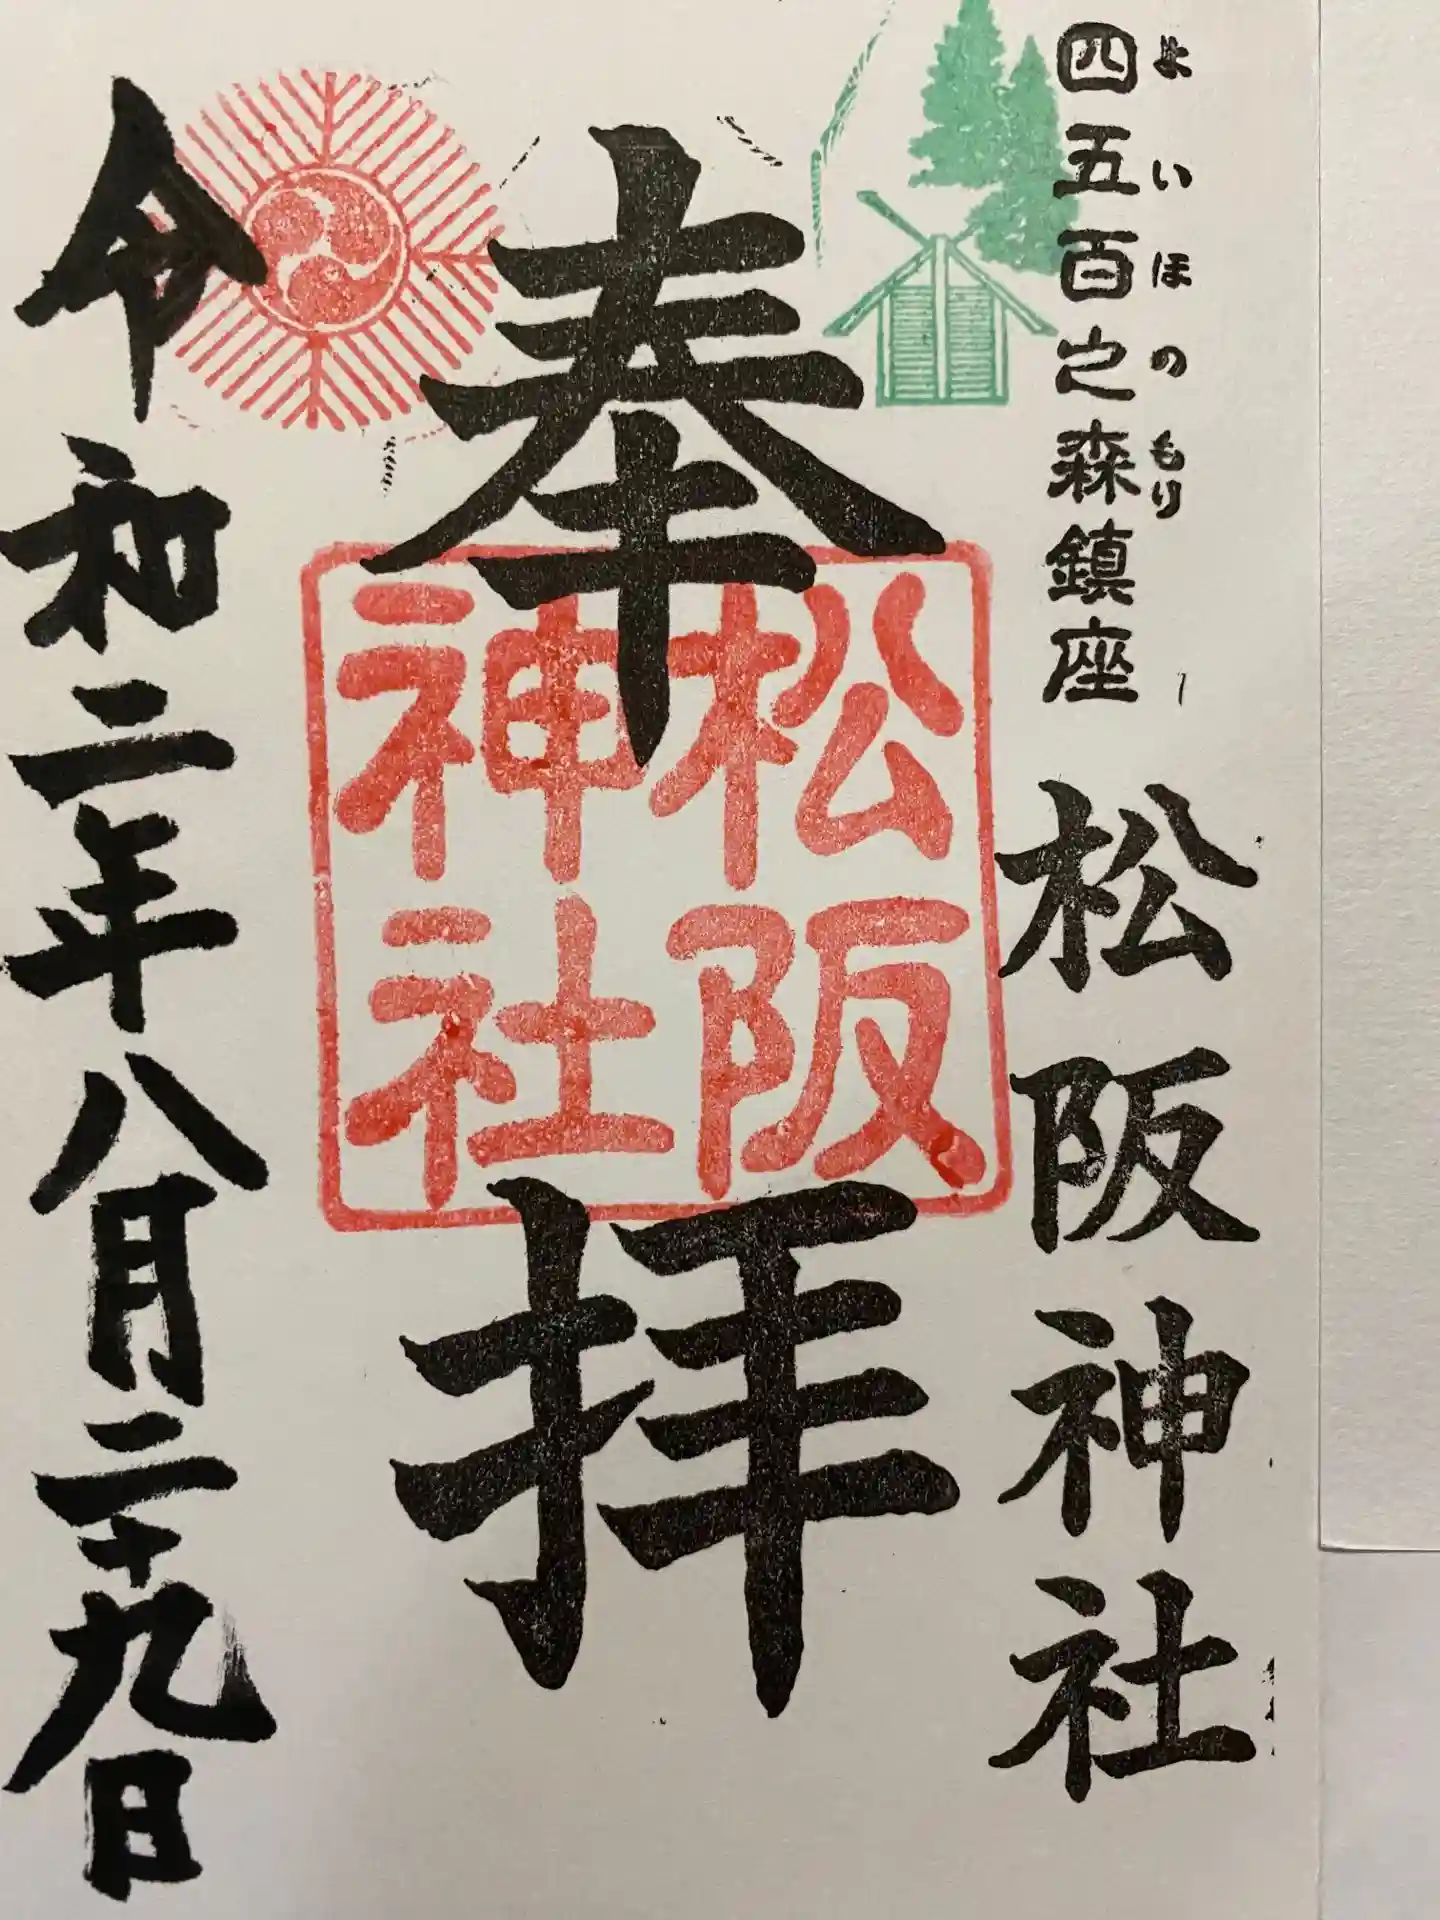 四五百之森鎮座
よいほのもり
松阪神社
奉拝
松阪
神社
令和二年八月二十九日